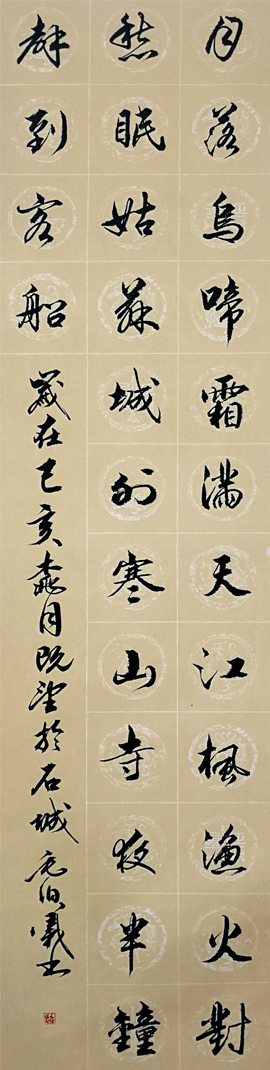 月落烏啼霜滿天江楓漁火對
愁眠姑蘇城外寒山寺夜半鐘
聲到客船
歲在己亥桃月既望於石城 伯儀書